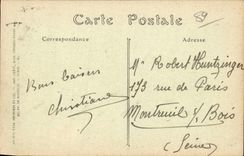 Carte Postale
89
Correspondance
Adresse
Bons baisers
Christiane
Mr Robert Huntzinger
173 rue de Paris
Montreuil s/ Bois
(Seine)